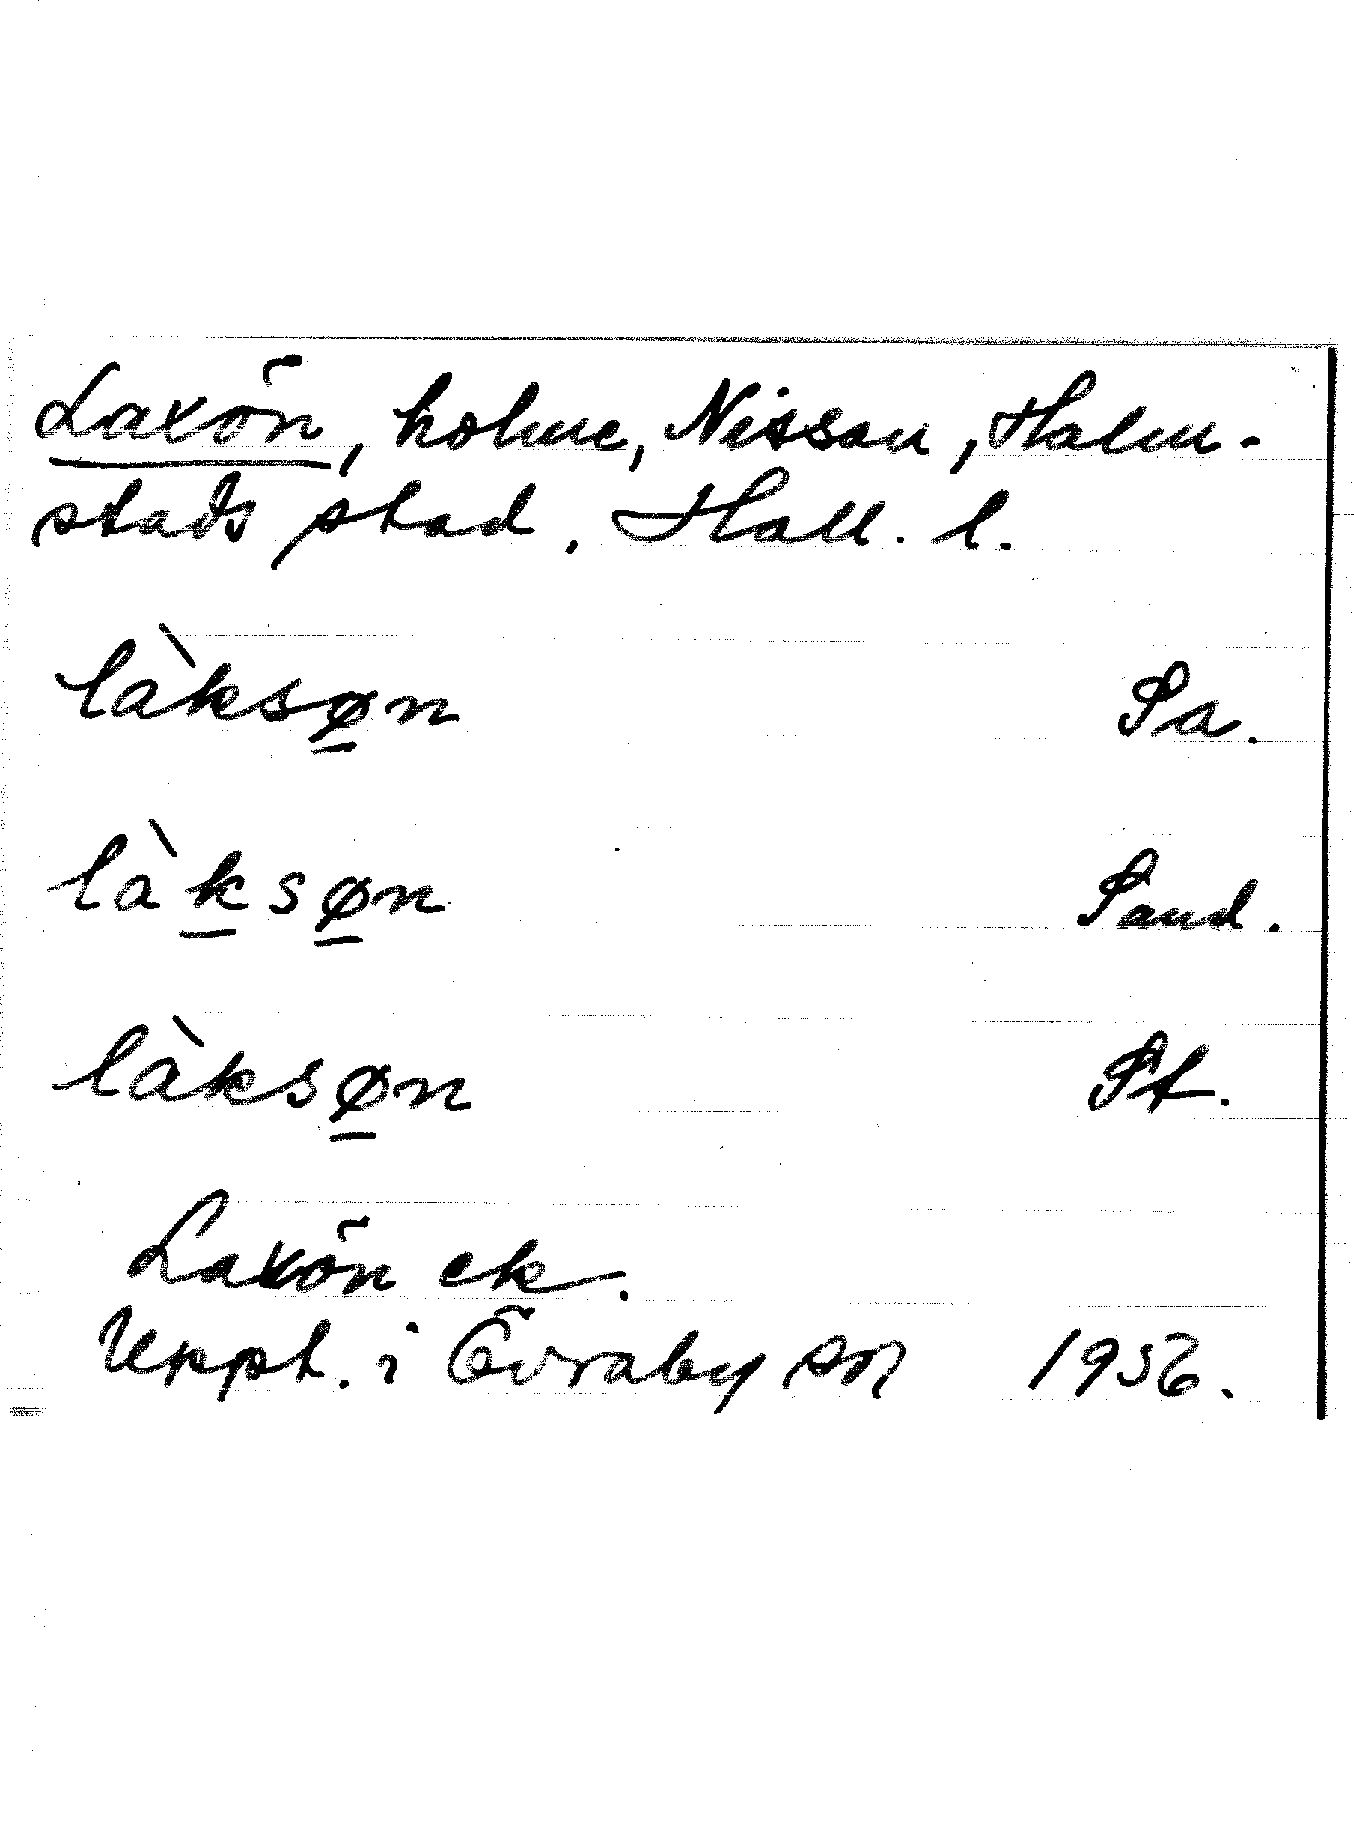 Laxön, holme, Nissan, Halm-
stads stad. Hall. l.
làksø̱n Sa.
làḵsø̱n Sand.
làksø̱n St.
Laxön ek.
Uppt. i Övraby sn 1956.